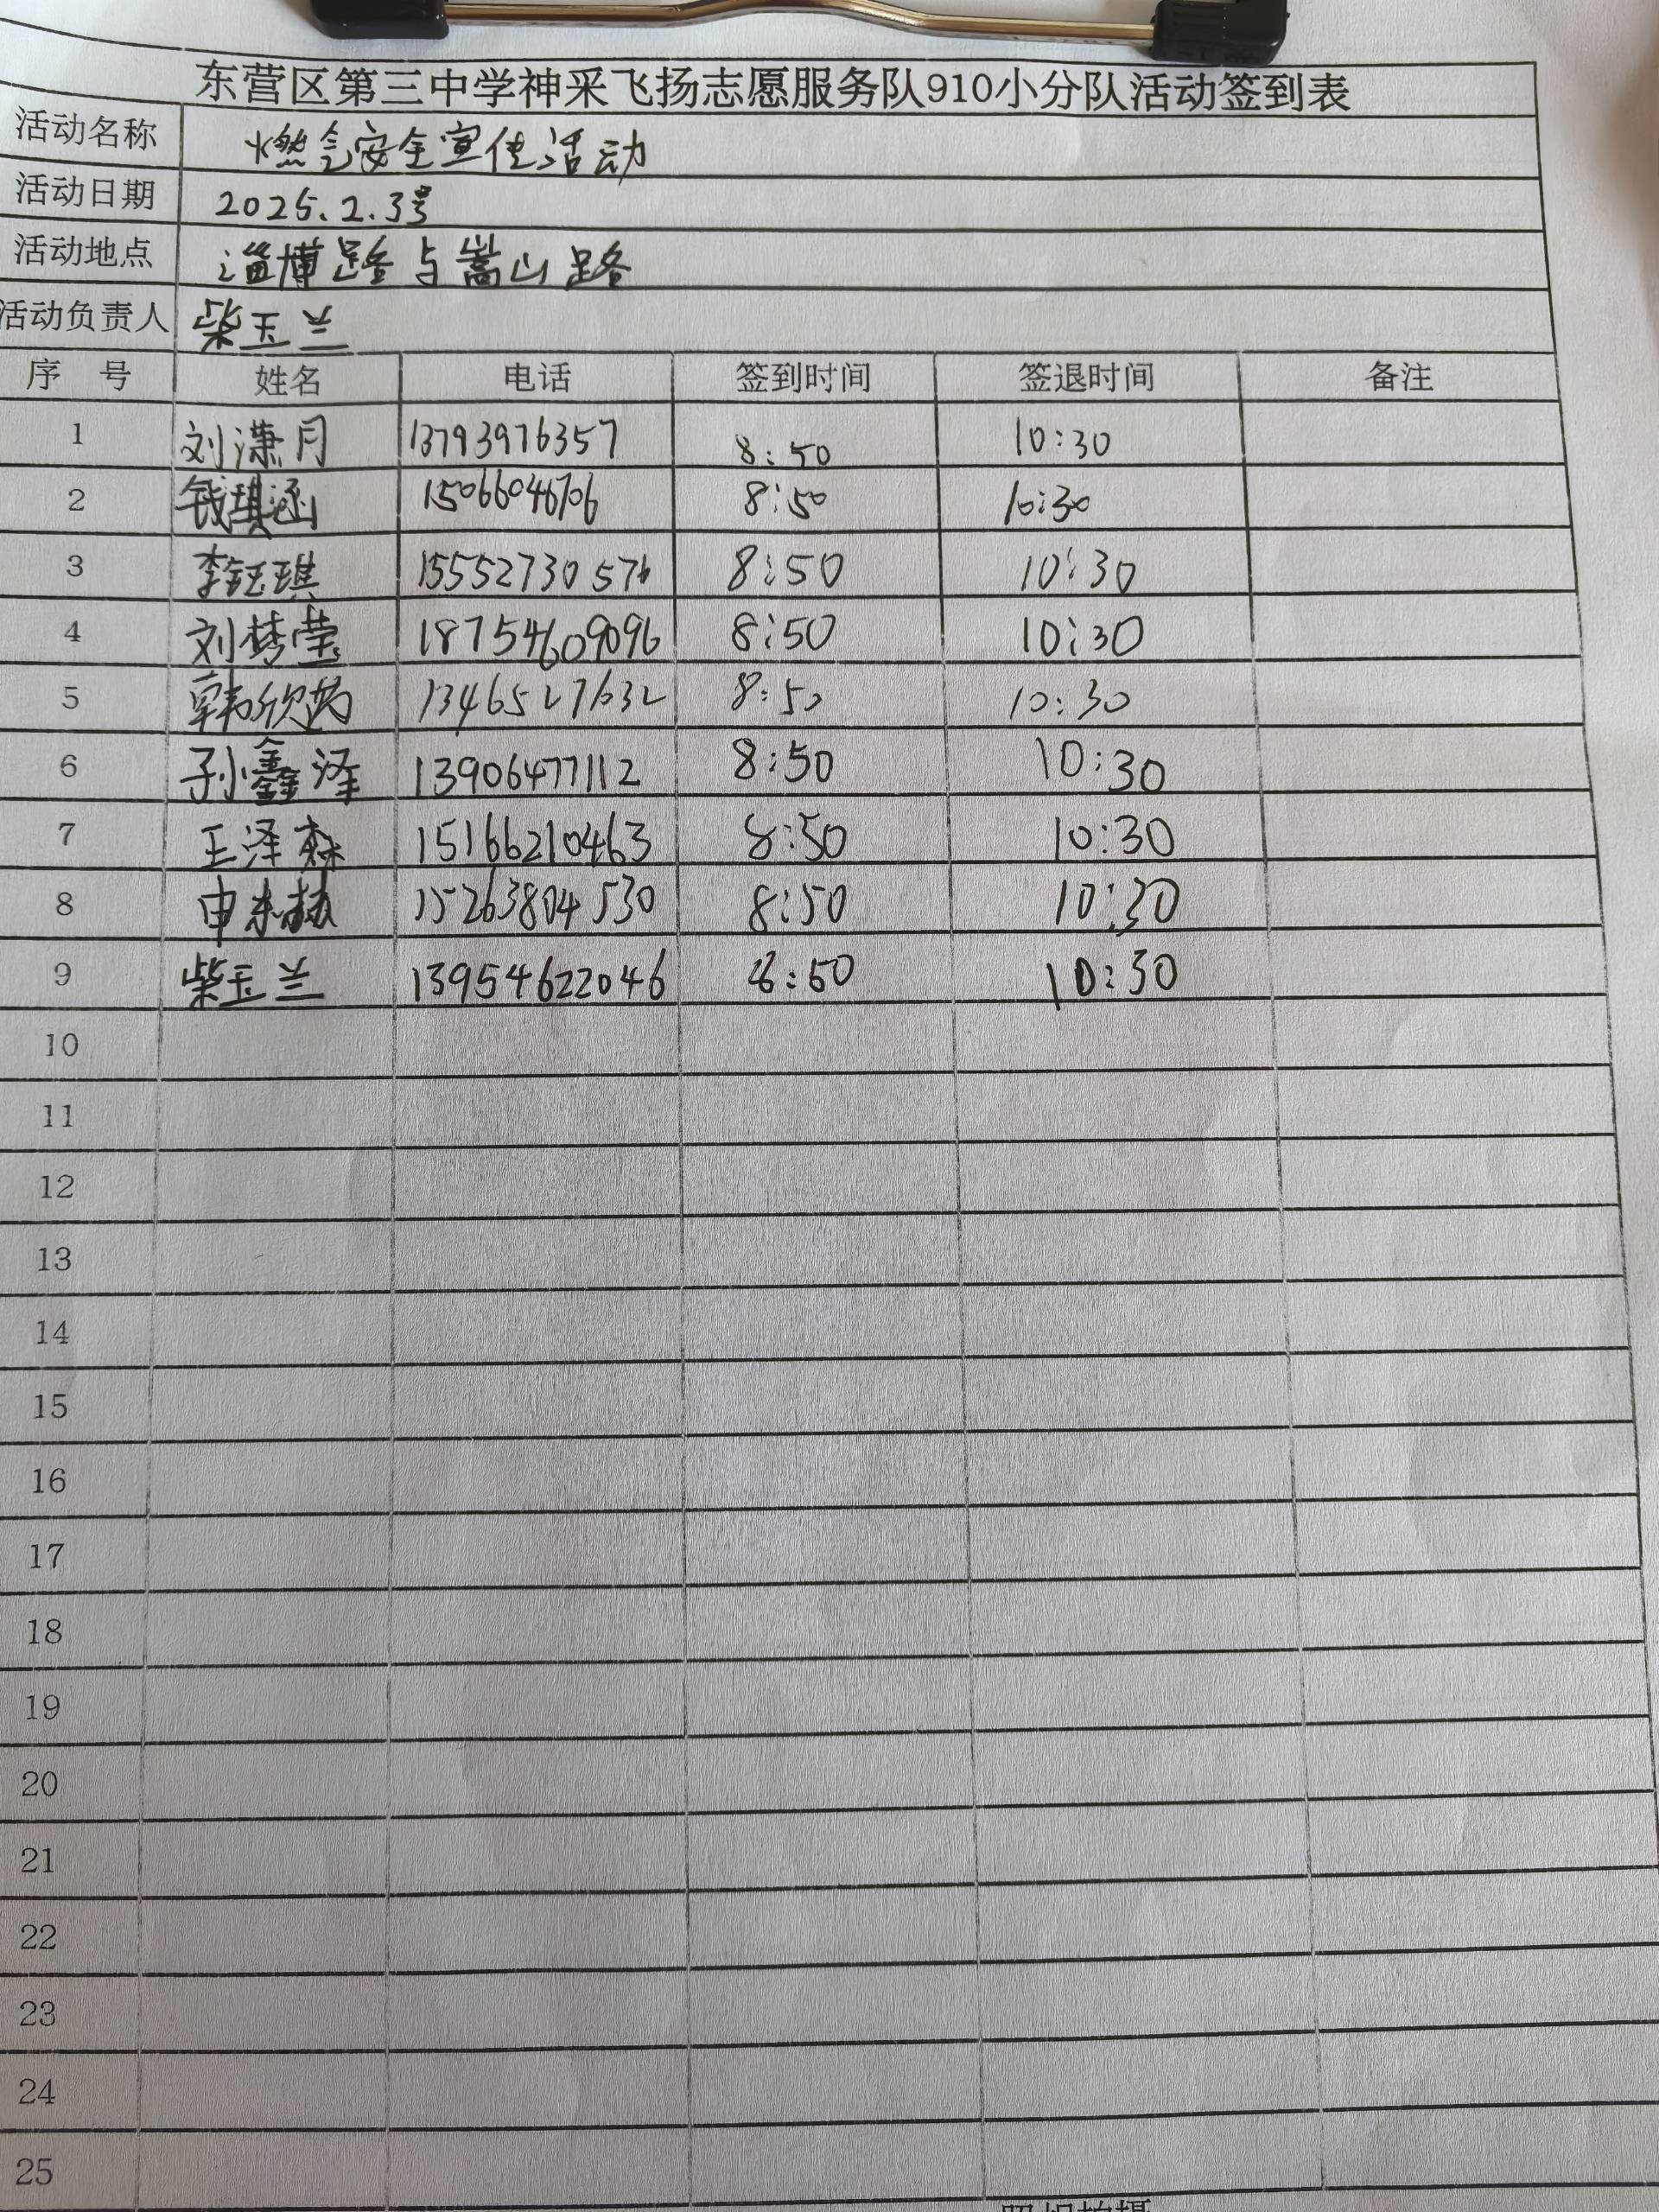 东营区第三中学神采飞扬志愿服务队910小分队活动签到表
活动名称 燃气安全宣传活动
活动日期 2025.2.3号
活动地点 淄博路与嵩山路
活动负责人 柴玉兰
序 号 姓名 电话 签到时间 签退时间 备注
1 刘潇月 13793976357 8:50 10:30
2 钱琪涵 15066046706 8:50 10:30
3 李钰琪 15552730576 8:50 10:30
4 刘梦莹 18754609096 8:50 10:30
5 韩欣 1346527632 8:50 10:30
6 孙鑫泽 13906477112 8:50 10:30
7 王泽森 15166210463 8:50 10:30
8 申东赫 15263804530 8:50 10:30
9 柴玉兰 13954622046 8:50 10:30
10
11
12
13
14
15
16
17
18
19
20
21
22
23
24
25